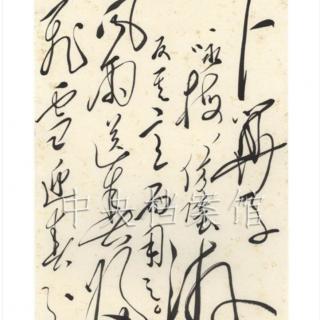 卜算子
咏梅、仿陆游
反其意而用之。
风雨送春归
飞雪迎春到
中央档案馆